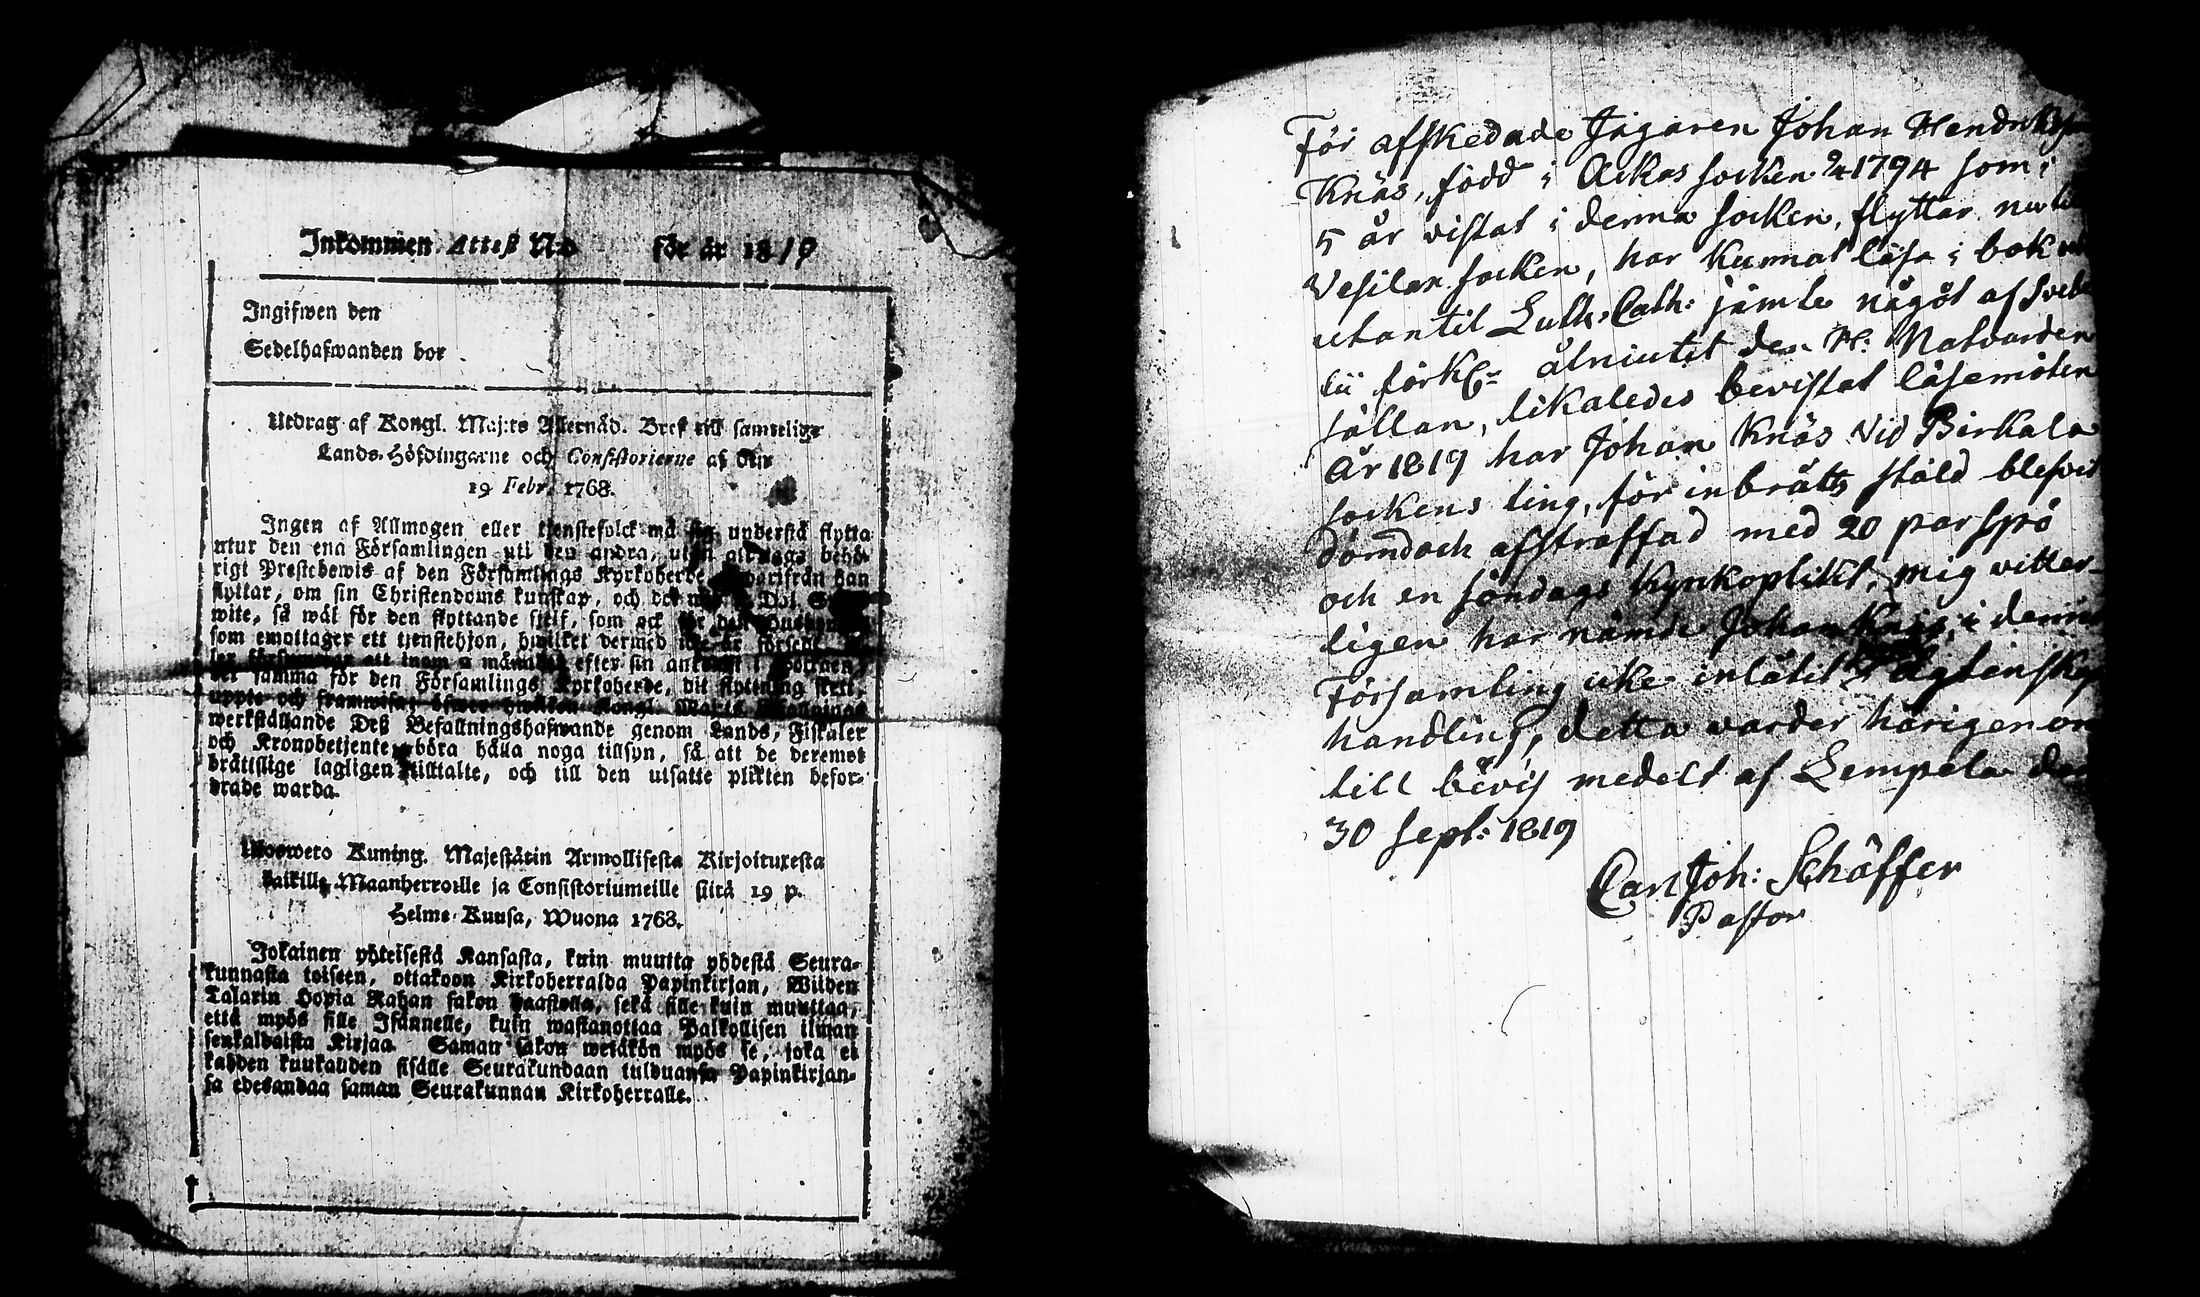 Inkommen Attest N:o för år 1819
Ingifwen den
Sedelhafwanden bor
Utdrag af Kongl. Maj:ts Allernåd. Bref till samtelige
Lands-Höfdingarne och Consistorierne af den
19 Febr. 1768.
Ingen af Allmogen eller tjenstefolck må sig understå flytta
utur den ena Församlingen uti den andra, utan at taga behö-
rigt Prestebewis af den Församlings Kyrkoherde hwarifrån han
flyttar, om sin Christendoms kunskap, och det wid Dal. S
wite, så wäl för den flyttande sjelf, som ock för den
som emottager ett tjenstehjon, hwilket dermed icke är försedt
att inom 2 månader efter sin ankomst i
det samma för den Församlings Kyrkoherde, dit flyttning skett,
uppte och framwisa; öfwer hwilken Kongl. Maj:ts Befallnings
werkställande Deß Befallningshafwande genom Lands-Fiskaler
och Kronobetjente böra hålla noga tillsyn, så att de deremot
brättslige lagligen tilltalte, och till den utsatte plikten befor-
drade warda.
Ulosweto Kuning. Majestätin Armollisesta Kirjoituxesta
kaikille Maanherroille ja Consistoriumeille siitä 19 p.
Helme-Kuusa, Wuona 1768.
Jokainen yhteisestä Kansasta, kuin muutta yhdestä Seura-
kunnasta toiseen, ottakoon Kirkoherralda Papinkirjan, Wiiden
Talarin Hopia Rahan sakon haastolla, sekä sille kuin muuttaa,
että myös sille Isännelle, kuin wastanottaa Palkollisen ilman
senkaldaista Kirjaa. Saman sakon wetäkön myös se, joka ei
kahden kuukauden sisälle Seurakundaan tulduansa Papinkirjan-
sa edesandaa saman Seurakunnan Kirkoherralle.
För afskedade Jägaren Johan Hendrikss
Knäs, född i Ackas socken 2/4 1794 som i
5 år vistat i denna socken, flyttar nu til
Vesilax socken, har kunnat läsa i bok
utantil Luth: Cath: jämte något af Sveb
lii förkl: åtniutit den H: Natvarden
sällan, likaledes bevistat läsemöten
År 1819 har Johan Knäs vid Birkala
sockens ting, för inbrätts stöld blefvit
dömd och afstraffad med 20 par spö
och en söndags kyrkoplikt, mig vitter-
ligen har nämde Johan Knäs, i denna
Församling icke inlåtit sig i ägtenskaps
handling, detta varder härigenom
till bevis medelt af Lempela den
30 Sept: 1819
Carl Joh: Schäffer
Pastor